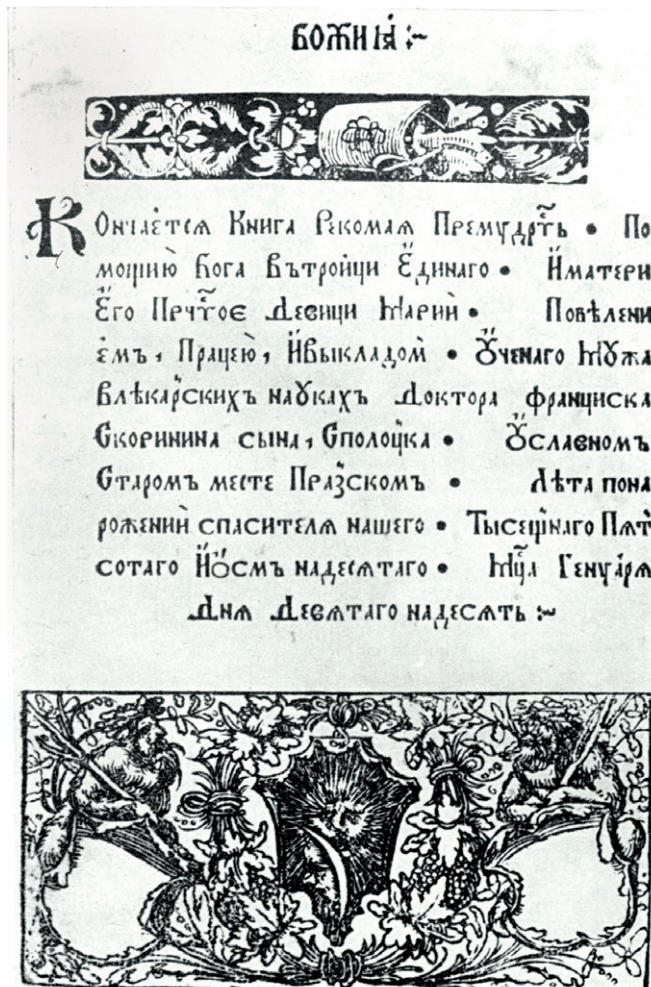 БОЖИꙖ :~
Кончаѐтсѧ Книга Рекомаѧ Премꙋдрⷭ҇ть • По
мощию Бога Вътройци Е҆динаго • И҆матери
Е҆го Прчⷭ҇тоє Девици Марии • Повѣлени
ѐмъ, Працею, И҆выкладом • Ꙋ҆ченаго Мꙋжа
Влѣкарскихъ наꙋкахъ Доктора франциска
Скоринина сына, Сполоцка • Ꙋ҆славномъ
Старомъ месте Празскомъ • Лѣта пона
рожении спасителѧ нашего • Тысещнаго Пѧт
сотаго И҆ѻсмъ надесѧтаго • Мⷭ҇ца Генꙋарѧ
Днѧ Девѧтаго надесѧть :~